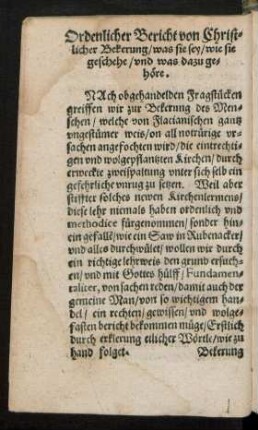 Ordenlicher Bericht von Christ-
licher Bekerung/was sie sey/wie sie
geschehe/vnd was dazu ge-
höre.
NAch obgehandelden Fragstücken
greiffen wir zur Bekerung des Men-
schen/ welche von Flacianischen gantz
vngestümer weis/on all notrürige vr-
sachen angefochten wird/die eintrechti-
gen vnd wolgepflantzten Kirchen/durch
erweckte zweispaltung vnter sich selb ein
gefehrliche vnrug zu setzen. Weil aber
stiffter solches newen Kirchenlermens/
diese lehr niemals haben ordenlich vnd
methodice fürgenommen/ sonder hin-
ein gefalln/wie ein Saw in Rubenacker/
vnd alles durchwület/ wollen wir durch
ein richtige lehrweis den grund ersuch-
en/vnd mit Gottes hülff/ Fundamen-
taliter, von sachen reden/damit auch der
gemeine Man/von so wichtigem han-
del/ ein rechten/ gewissen/ vnd wolge-
fasten bericht bekommen müge/Erstlich
durch erklerung etlicher Wörtle/wie zu
hand folget. Bekerung